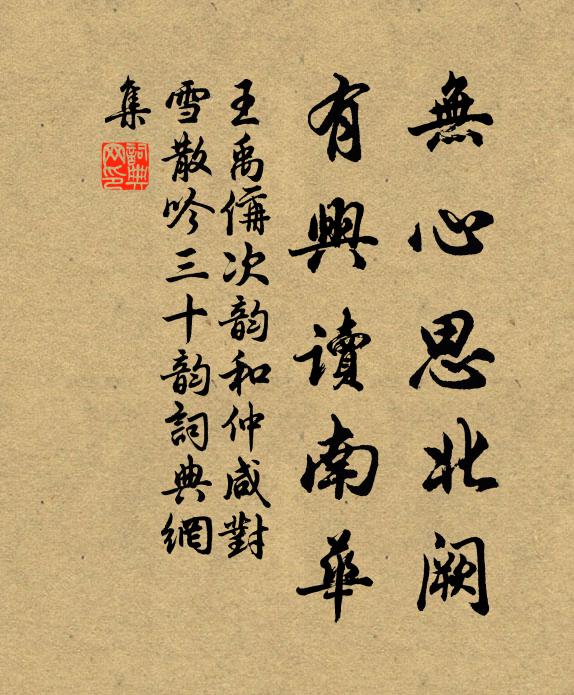 無心思北阙
有興讀南華
王禹偁次韵和仲咸對
雪散吟三十韵詞典網
集
詞典網印